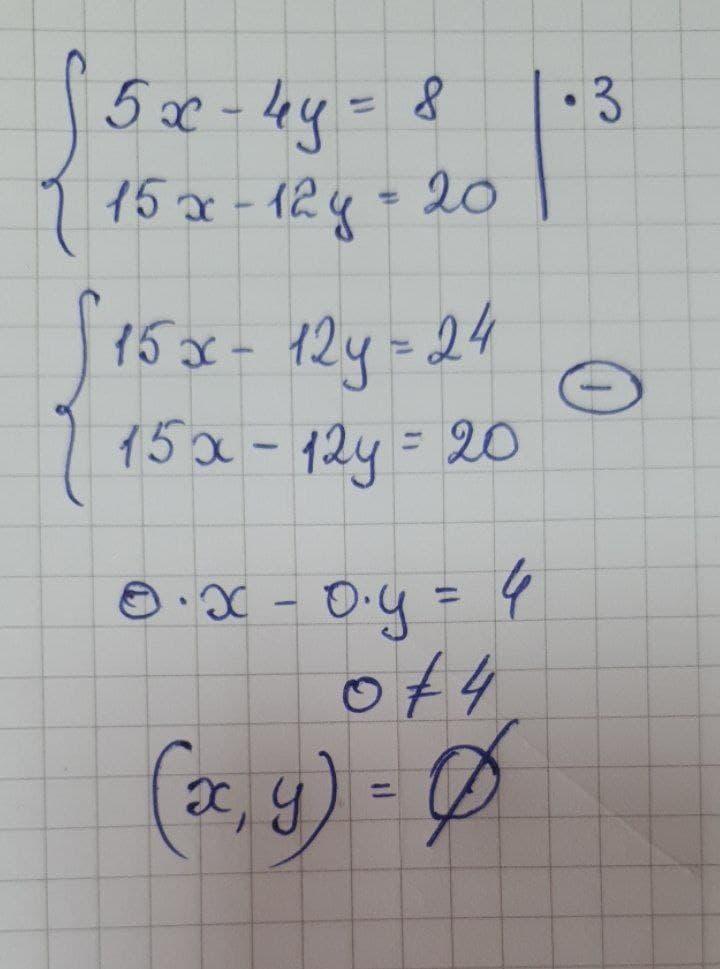 5x - 4y = 8 | · 3
15x - 12y = 20
15x - 12y = 24
15x - 12y = 20
⊖
0 · x - 0 · y = 4
0 ≠ 4
(x, y) = ∅